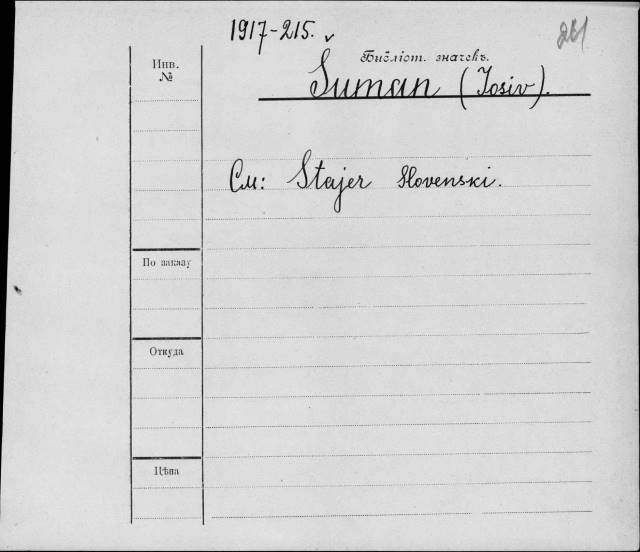 1917-215.
261
Библіот. значекъ.
Инв.
№
Šuman (Josiv).
См: Stajer Slovenski.
По заказу
Откуда
Цѣна